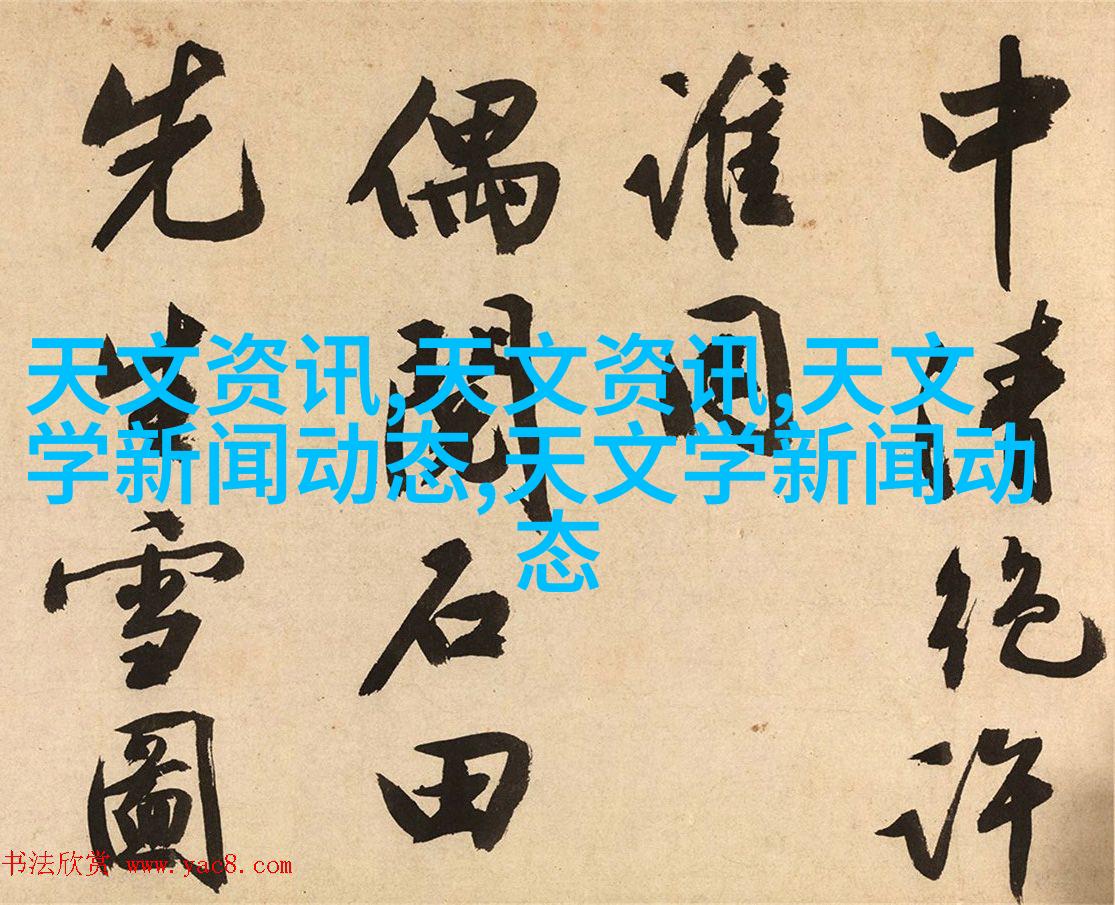 中清絶許
誰同
偶閱石田
先生雪圖
天文资讯,天文资讯,天文
学新闻动态,天文学新闻动
态
书法欣赏 www.yac8.com